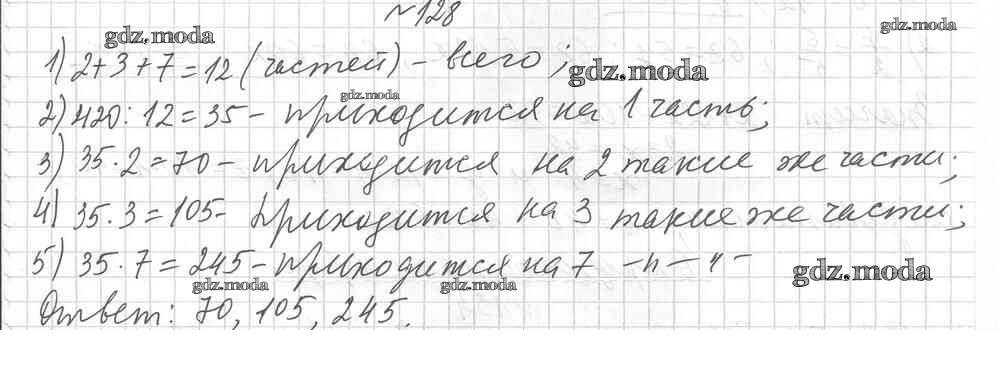 №128
gdz.moda
gdz.moda
1) 2+3+7=12 (частей) - всего;
gdz.moda
gdz.moda
2) 420:12=35 - приходится на 1 часть;
3) 35·2=70 - приходится на 2 такие же части;
4) 35·3=105 - приходится на 3 такие же части;
5) 35·7=245 - приходится на 7 -"-"-
gdz.moda
gdz.moda
gdz.moda
Ответ: 70, 105, 245.
gdz.moda
gdz.moda